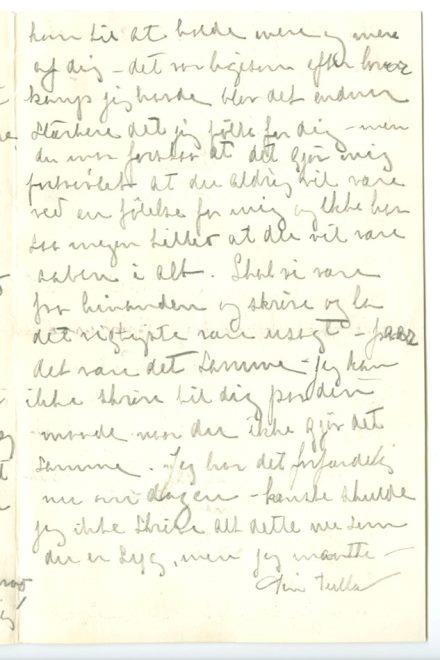 kom til at holde mere og mere
af dig – det var ligesom efter hver
kamp jeg havde blev det endnu
stærkere det jeg følte for dig – men
du maa forstaa at det gjør mig
fortvivlet at du aldrig vil være
ved en følelse for mig og ikke har
saa megen tillid at du vil være
aaben i alt. Skal vi være
fra hinanden og skrive og la
det vigtigste være usagt –
det være det samme – jeg kan
ikke skrive til dig paa den
maade naar du ikke gjør det
samme. Jeg har det forfærdelig
nu om dagen – kanske skulde
jeg ikke skrive alt dette nu som
du er syg, men jeg maatte –
Din Tulla